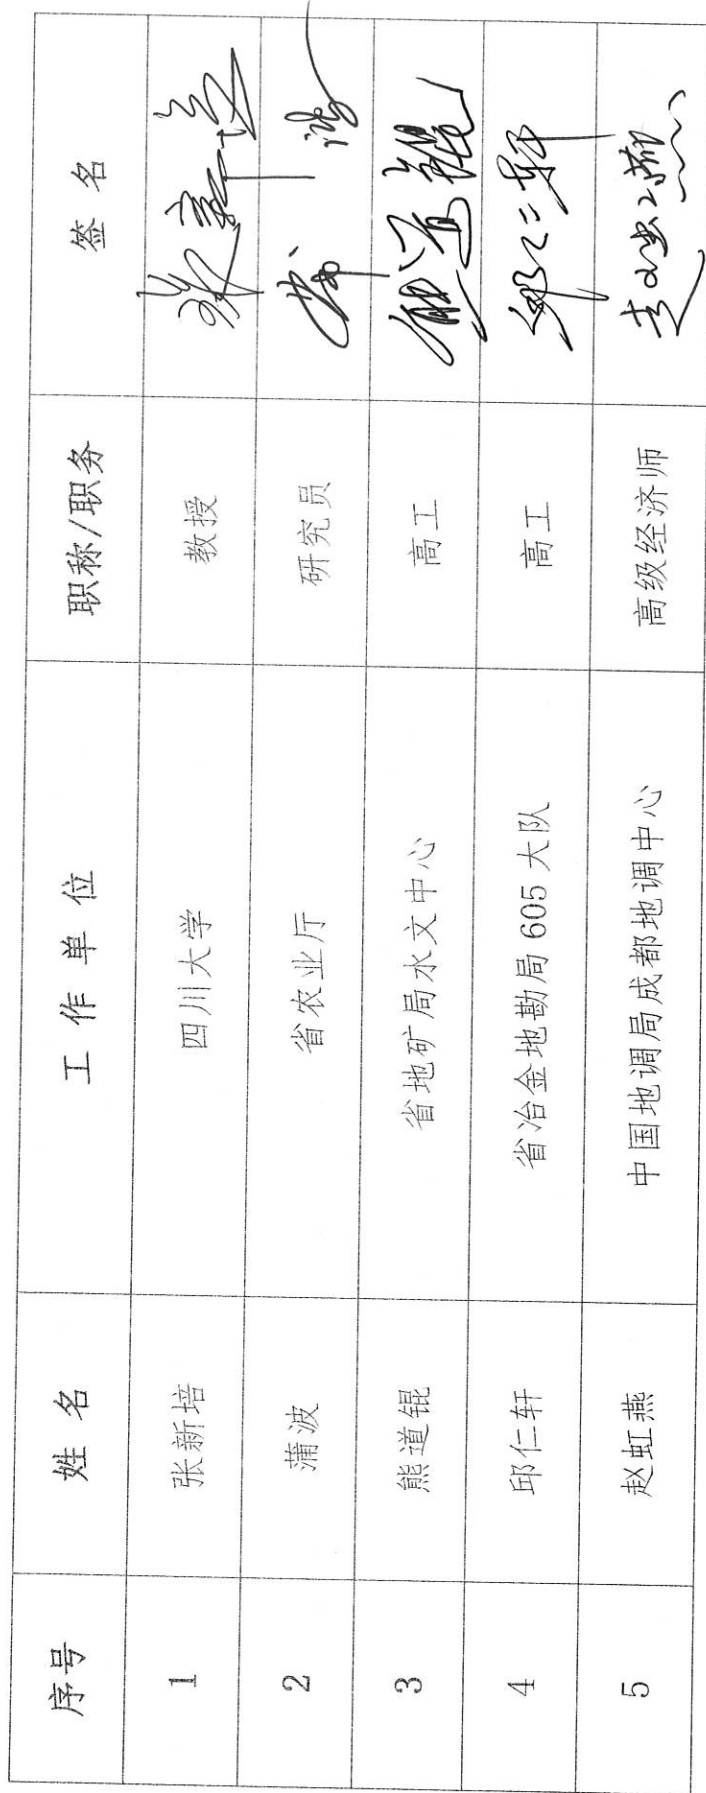 序号 姓名 工作单位 职称/职务 签名
1 张新培 四川大学 教授 张新培
2 蒲波 省农业厅 研究员
3 熊道锟 省地矿局水文中心 高工 熊道锟
4 邱仁轩 省冶金地勘局 605 大队 高工 邱仁轩
5 赵虹燕 中国地调局成都地调中心 高级经济师 赵虹燕